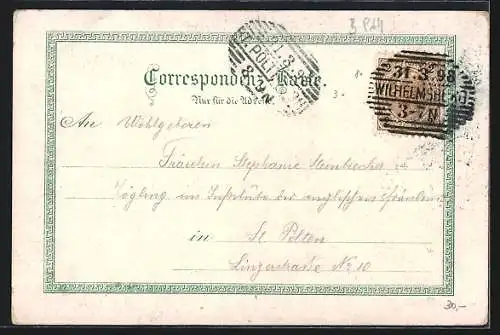 3 Pt4
31.3.98
WILHELMSBURG
3-7N
ST. PÖLTEN
8-9.V
Correspondenz-Karte.
Nur für die Adresse.
1.-
3.-
An Wohlgeboren
Fräulein Stephanie
Zögling im Institute der englischen Fräulein
in St. Pölten
Linzerstrasse Nr. 10
30,-